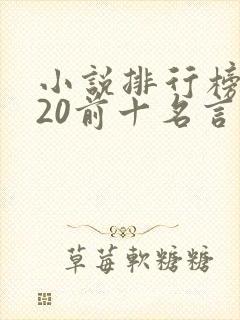 小說排行榜
20前十名言
草莓軟糖糖